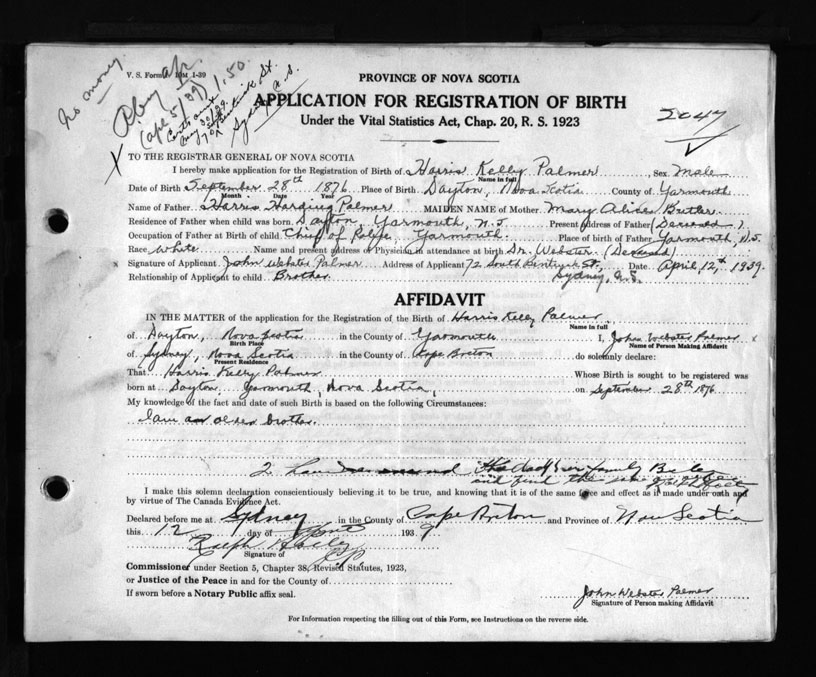 No money
V. S. Form 10M 1-39
1.50.
PROVINCE OF NOVA SCOTIA
APPLICATION FOR REGISTRATION OF BIRTH
Under the Vital Statistics Act, Chap. 20, R. S. 1923
2047
X TO THE REGISTRAR GENERAL OF NOVA SCOTIA
I hereby make application for the Registration of Birth of Harris Kelly Palmer, Sex Male
Name in full
Date of Birth September 28th 1876 Place of Birth Dayton, Nova Scotia County of Yarmouth
Month Date Year
Name of Father Harris Harding Palmer MAIDEN NAME of Mother Mary Butler
Residence of Father when child was born Dayton, Yarmouth, N.S. Present address of Father (Deceased)
Occupation of Father at Birth of child Chief of Police, Yarmouth Place of birth of Father Yarmouth, N.S.
Race White Name and present address of Physician in attendance at birth Dr. Webster (Deceased)
Signature of Applicant John Webster Palmer Address of Applicant 72 South St, Date April 12th 1939.
Relationship of Applicant to child Brother Sydney, N.S.
AFFIDAVIT
IN THE MATTER of the application for the Registration of the Birth of Harris Kelly Palmer
Name in full
of Dayton, Nova Scotia in the County of Yarmouth I, John Webster Palmer
Birth Place Name of Person Making Affidavit
of Sydney, Nova Scotia in the County of Cape Breton do solemnly declare:
Present Residence
That Harris Kelly Palmer Whose Birth is sought to be registered was
born at Dayton Yarmouth, Nova Scotia, on September 28th 1876
My knowledge of the fact and date of such Birth is based on the following Circumstances:
I am an older brother.
family
and find the
I make this solemn declaration conscientiously believing it to be true, and knowing that it is of the same force and effect as if made under oath and
by virtue of The Canada Evidence Act.
Declared before me at Sydney in the County of Cape Breton and Province of Nova Scotia
this 12 day of 1939
Ralph
Signature of
Commissioner under Section 5, Chapter 38, Revised Statutes, 1923,
or Justice of the Peace in and for the County of
If sworn before a Notary Public affix seal.
John Webster Palmer
Signature of Person making Affidavit
For Information respecting the filling out of this Form, see Instructions on the reverse side.